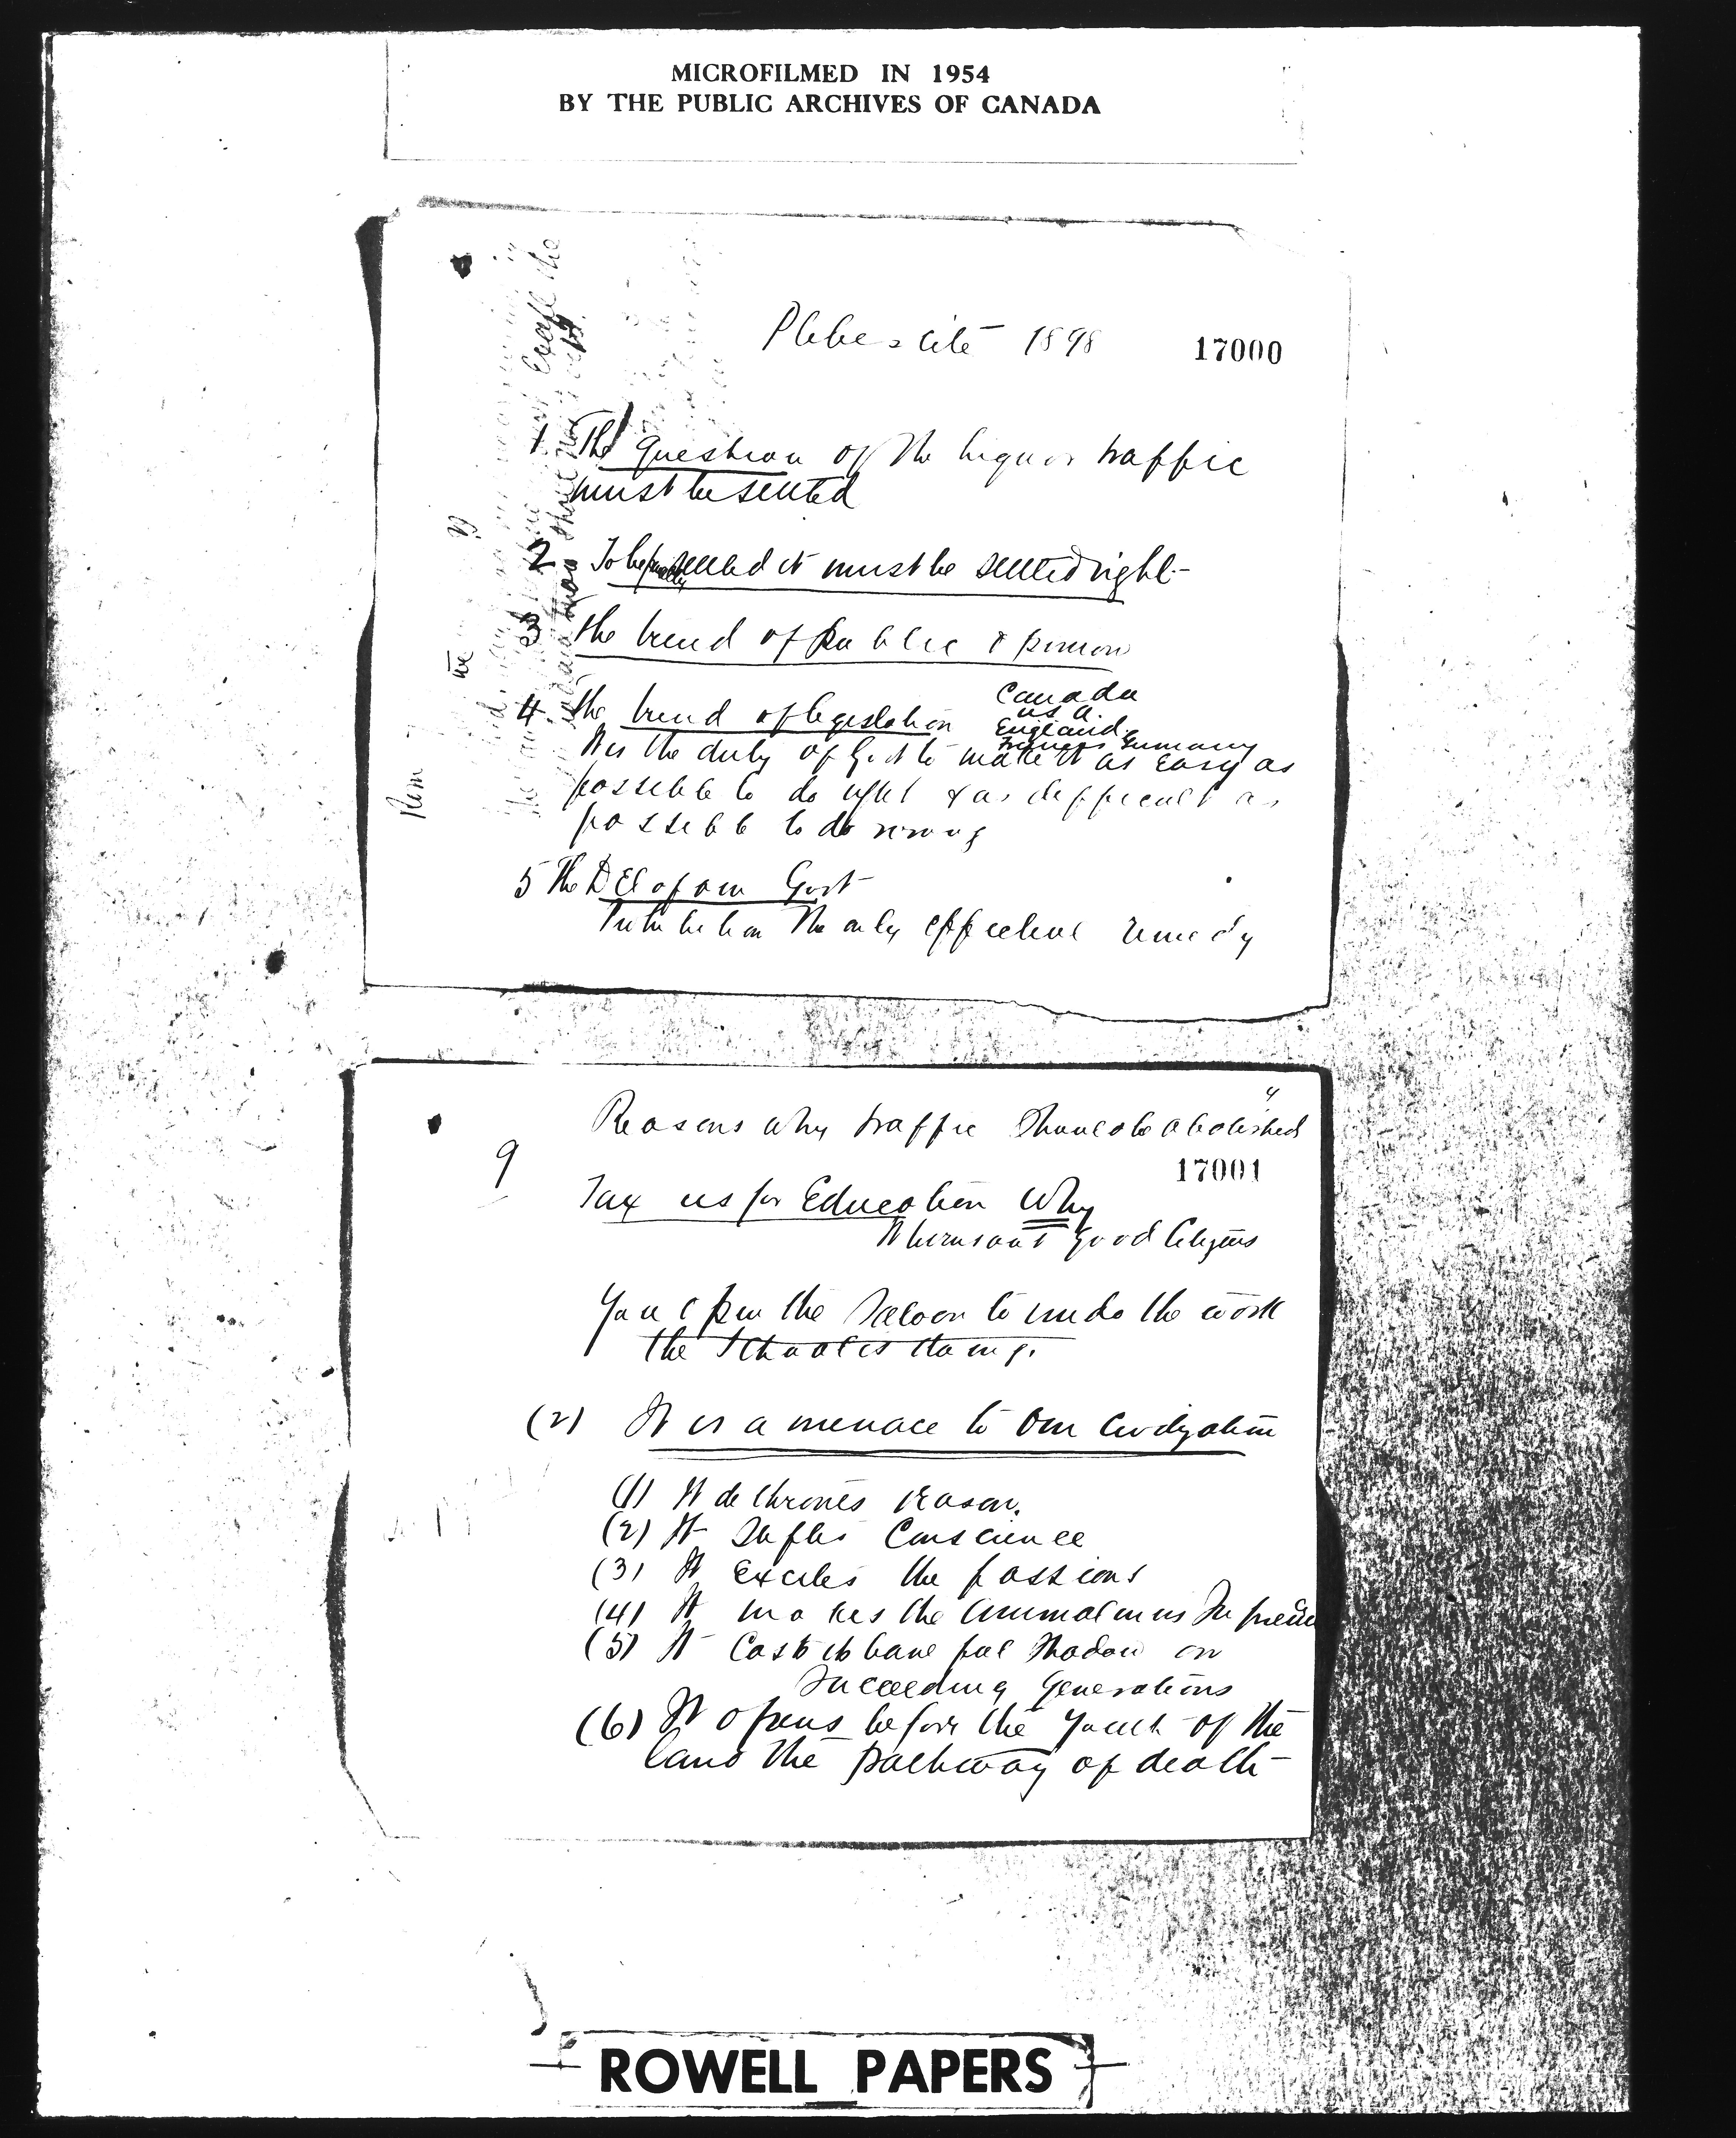 MICROFILMED IN 1954
BY THE PUBLIC ARCHIVES OF CANADA
Plebescite 1898
17000
1 The question of the liquor traffic
must be settled
2 To be finally settled it must be settled right-
3 the trend of public opinion
4. the trend of legislation
Canada
U.S.A.
England
Germany
It is the duty of Govt to make it as easy as
possible to do right & as difficult as
possible to do wrong
5 The of our Govt
Prohibition the only effective remedy
Reasons why traffic should be abolished
9
17001
Tax us for Education Why
good Citizens
You open the Saloon to undo the work
the School is doing.
(2) It is a menace to our Civilization
(1) It dethrones reason.
(2) It Stifles Conscience
(3) It excites the passions
(4) It makes the animal in us Supreme
(5) It Casts its baneful Shadow on
Succeeding Generations
(6) It opens before the youth of the
land the pathway of death-
ROWELL PAPERS